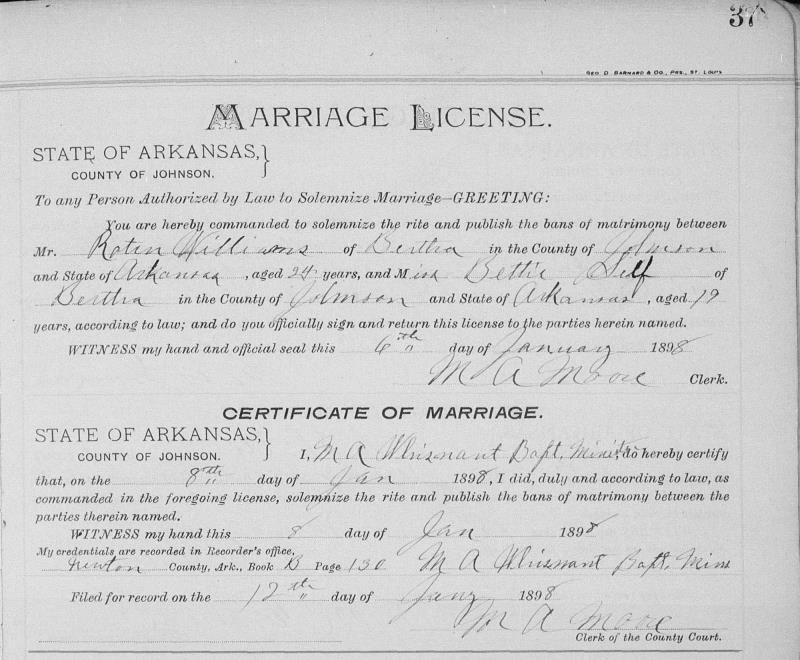 37
GEO. D. BARNARD & CO., PRS., ST. LOUIS
MARRIAGE LICENSE.
STATE OF ARKANSAS,
COUNTY OF JOHNSON.
To any Person Authorized by Law to Solemnize Marriage—GREETING:
You are hereby commanded to solemnize the rite and publish the bans of matrimony between
Mr. Roten Williams of Bertha in the County of Johnson
and State of Arkansas, aged 24 years, and Miss Bettie Self of
Bertha in the County of Johnson and State of Arkansas, aged 19
years, according to law; and do you officially sign and return this license to the parties herein named.
WITNESS my hand and official seal this 6th day of January 1898
M A Moore Clerk.
CERTIFICATE OF MARRIAGE.
STATE OF ARKANSAS,
COUNTY OF JOHNSON.
I, M A Whisnant Bapt. Minister, do hereby certify
that, on the 8th day of Jan 1898, I did, duly and according to law, as
commanded in the foregoing license, solemnize the rite and publish the bans of matrimony between the
parties therein named.
WITNESS my hand this 8 day of Jan 1898
My credentials are recorded in Recorder's office,
Newton County, Ark., Book B Page 130 M A Whisnant Bapt. Mins
Filed for record on the 12th day of Jany 1898
M A Moore
Clerk of the County Court.